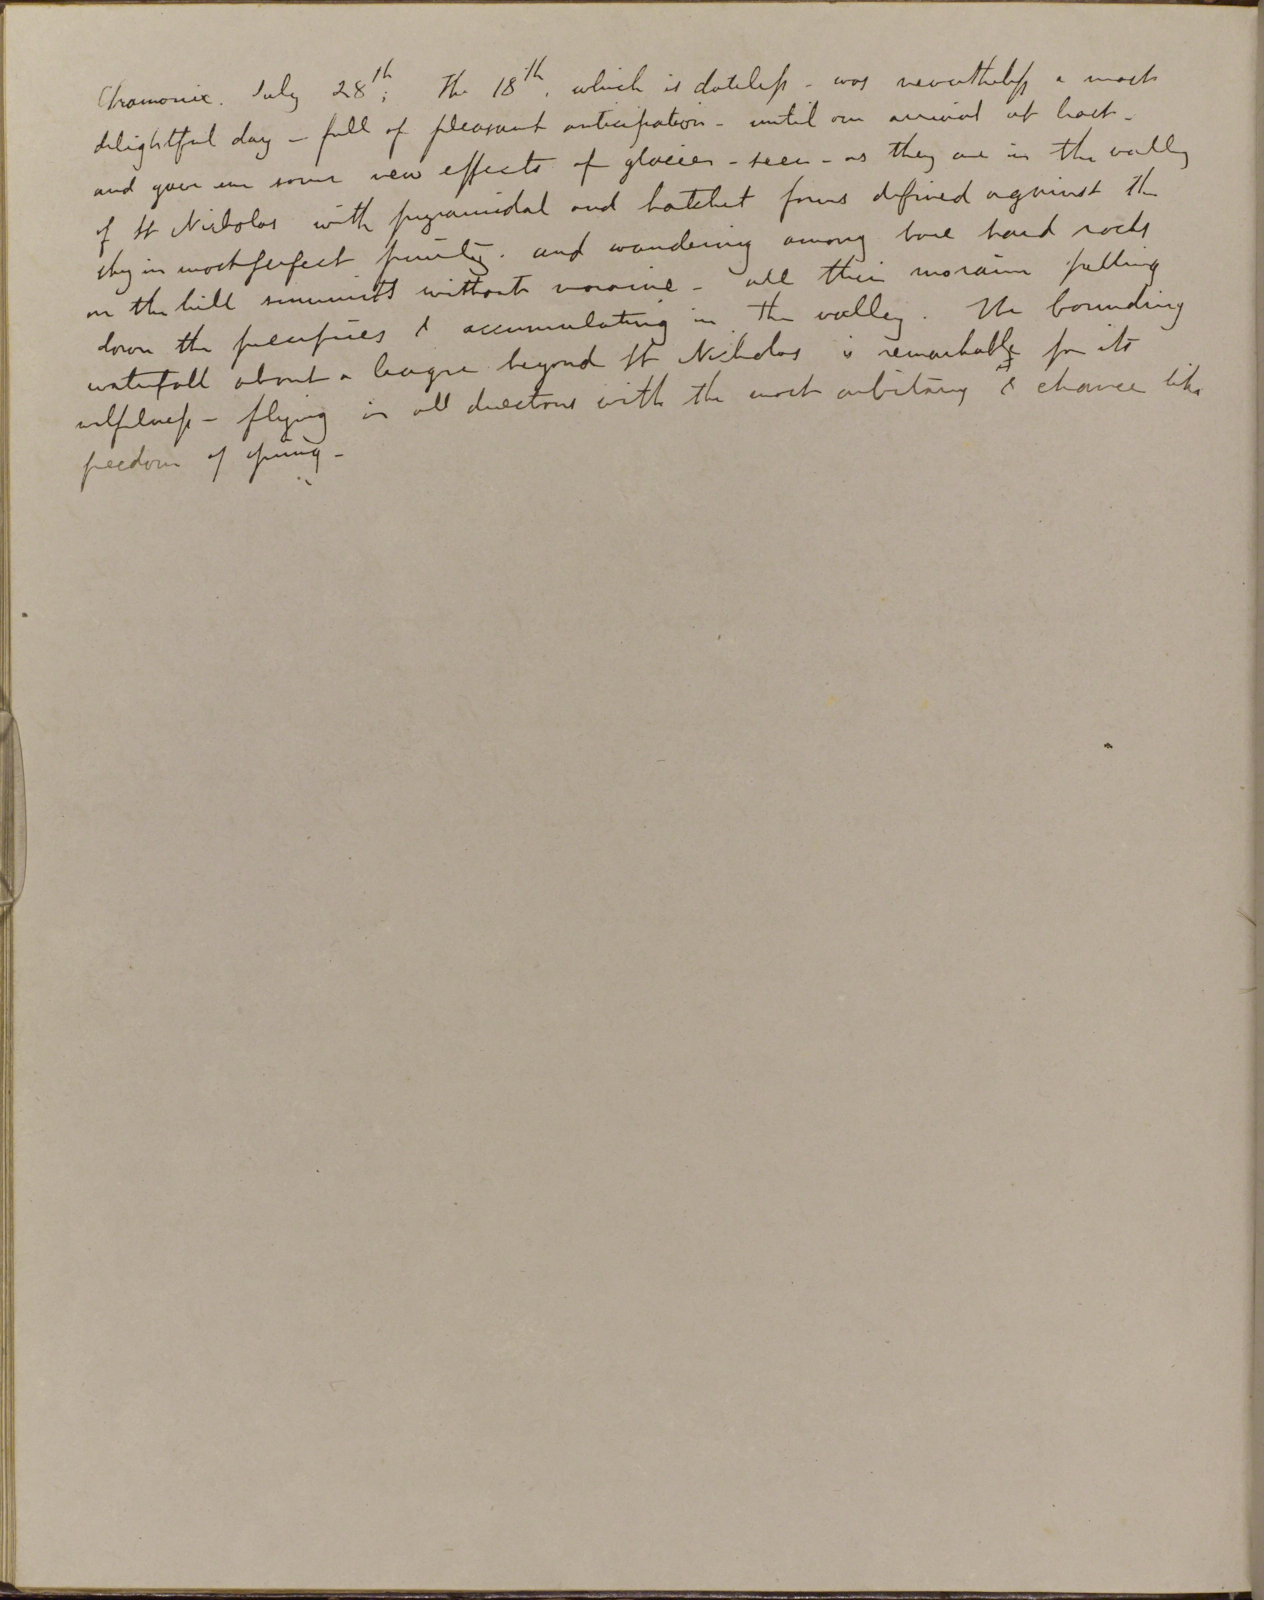 Chamonix. July 28th; The 18th, which is dateless - was nevertheless a most
delightful day - full of pleasant anticipation - until our arrival at
and gave me some new effects of glacier - seen - as they are in the valley
of St Nicholas with pyramidal and hatchet forms defined against the
sky in most perfect purity. and wandering among bare hard rocks
on the hill summits without moraine - all their moraine falling
down the precipices & accumulating in the valley. The bounding
waterfall about a league beyond St Nicholas is remarkable for its
wilfulness - flying in all directions with the most arbitrary & chance like
freedom of spring -